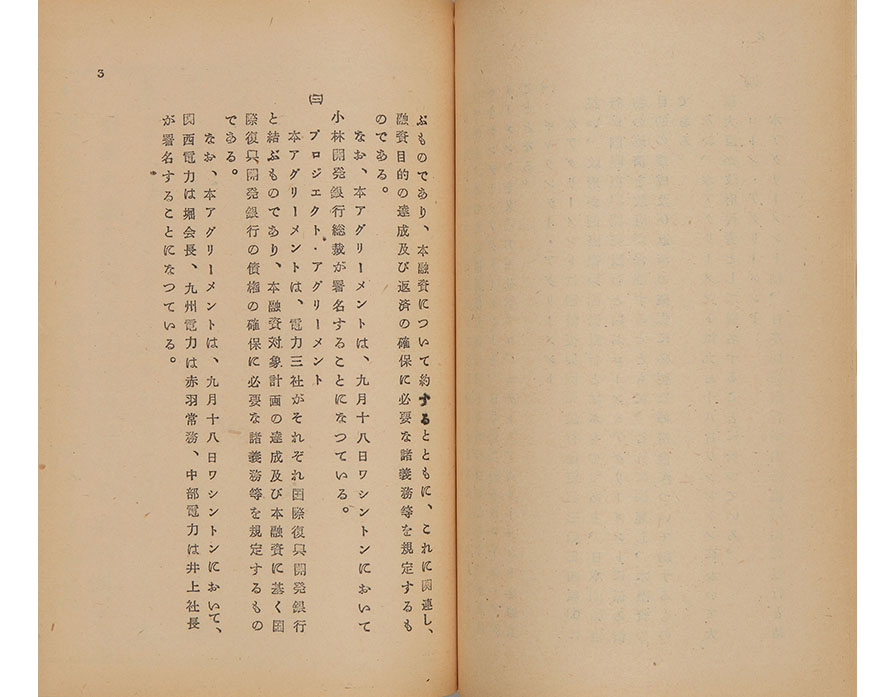 ぶものであり、本融資について約するとともに、これに関連し、
融資目的の達成及び返済の確保に必要な諸義務等を規定するも
のである。
なお、本アグリーメントは、九月十八日ワシントンにおいて
小林開発銀行総裁が署名することになつている。
㈢ プロジエクト・アグリーメント
本アグリーメントは、電力三社がそれぞれ国際復興開発銀行
と結ぶものであり、本融資対象計画の達成及び本融資に基く国
際復興開発銀行の債権の確保に必要な諸義務等を規定するもの
である。
なお、本アグリーメントは、九月十八日ワシントンにおいて、
関西電力は堀会長、九州電力は赤羽常務、中部電力は井上社長
が署名することになつている。
3